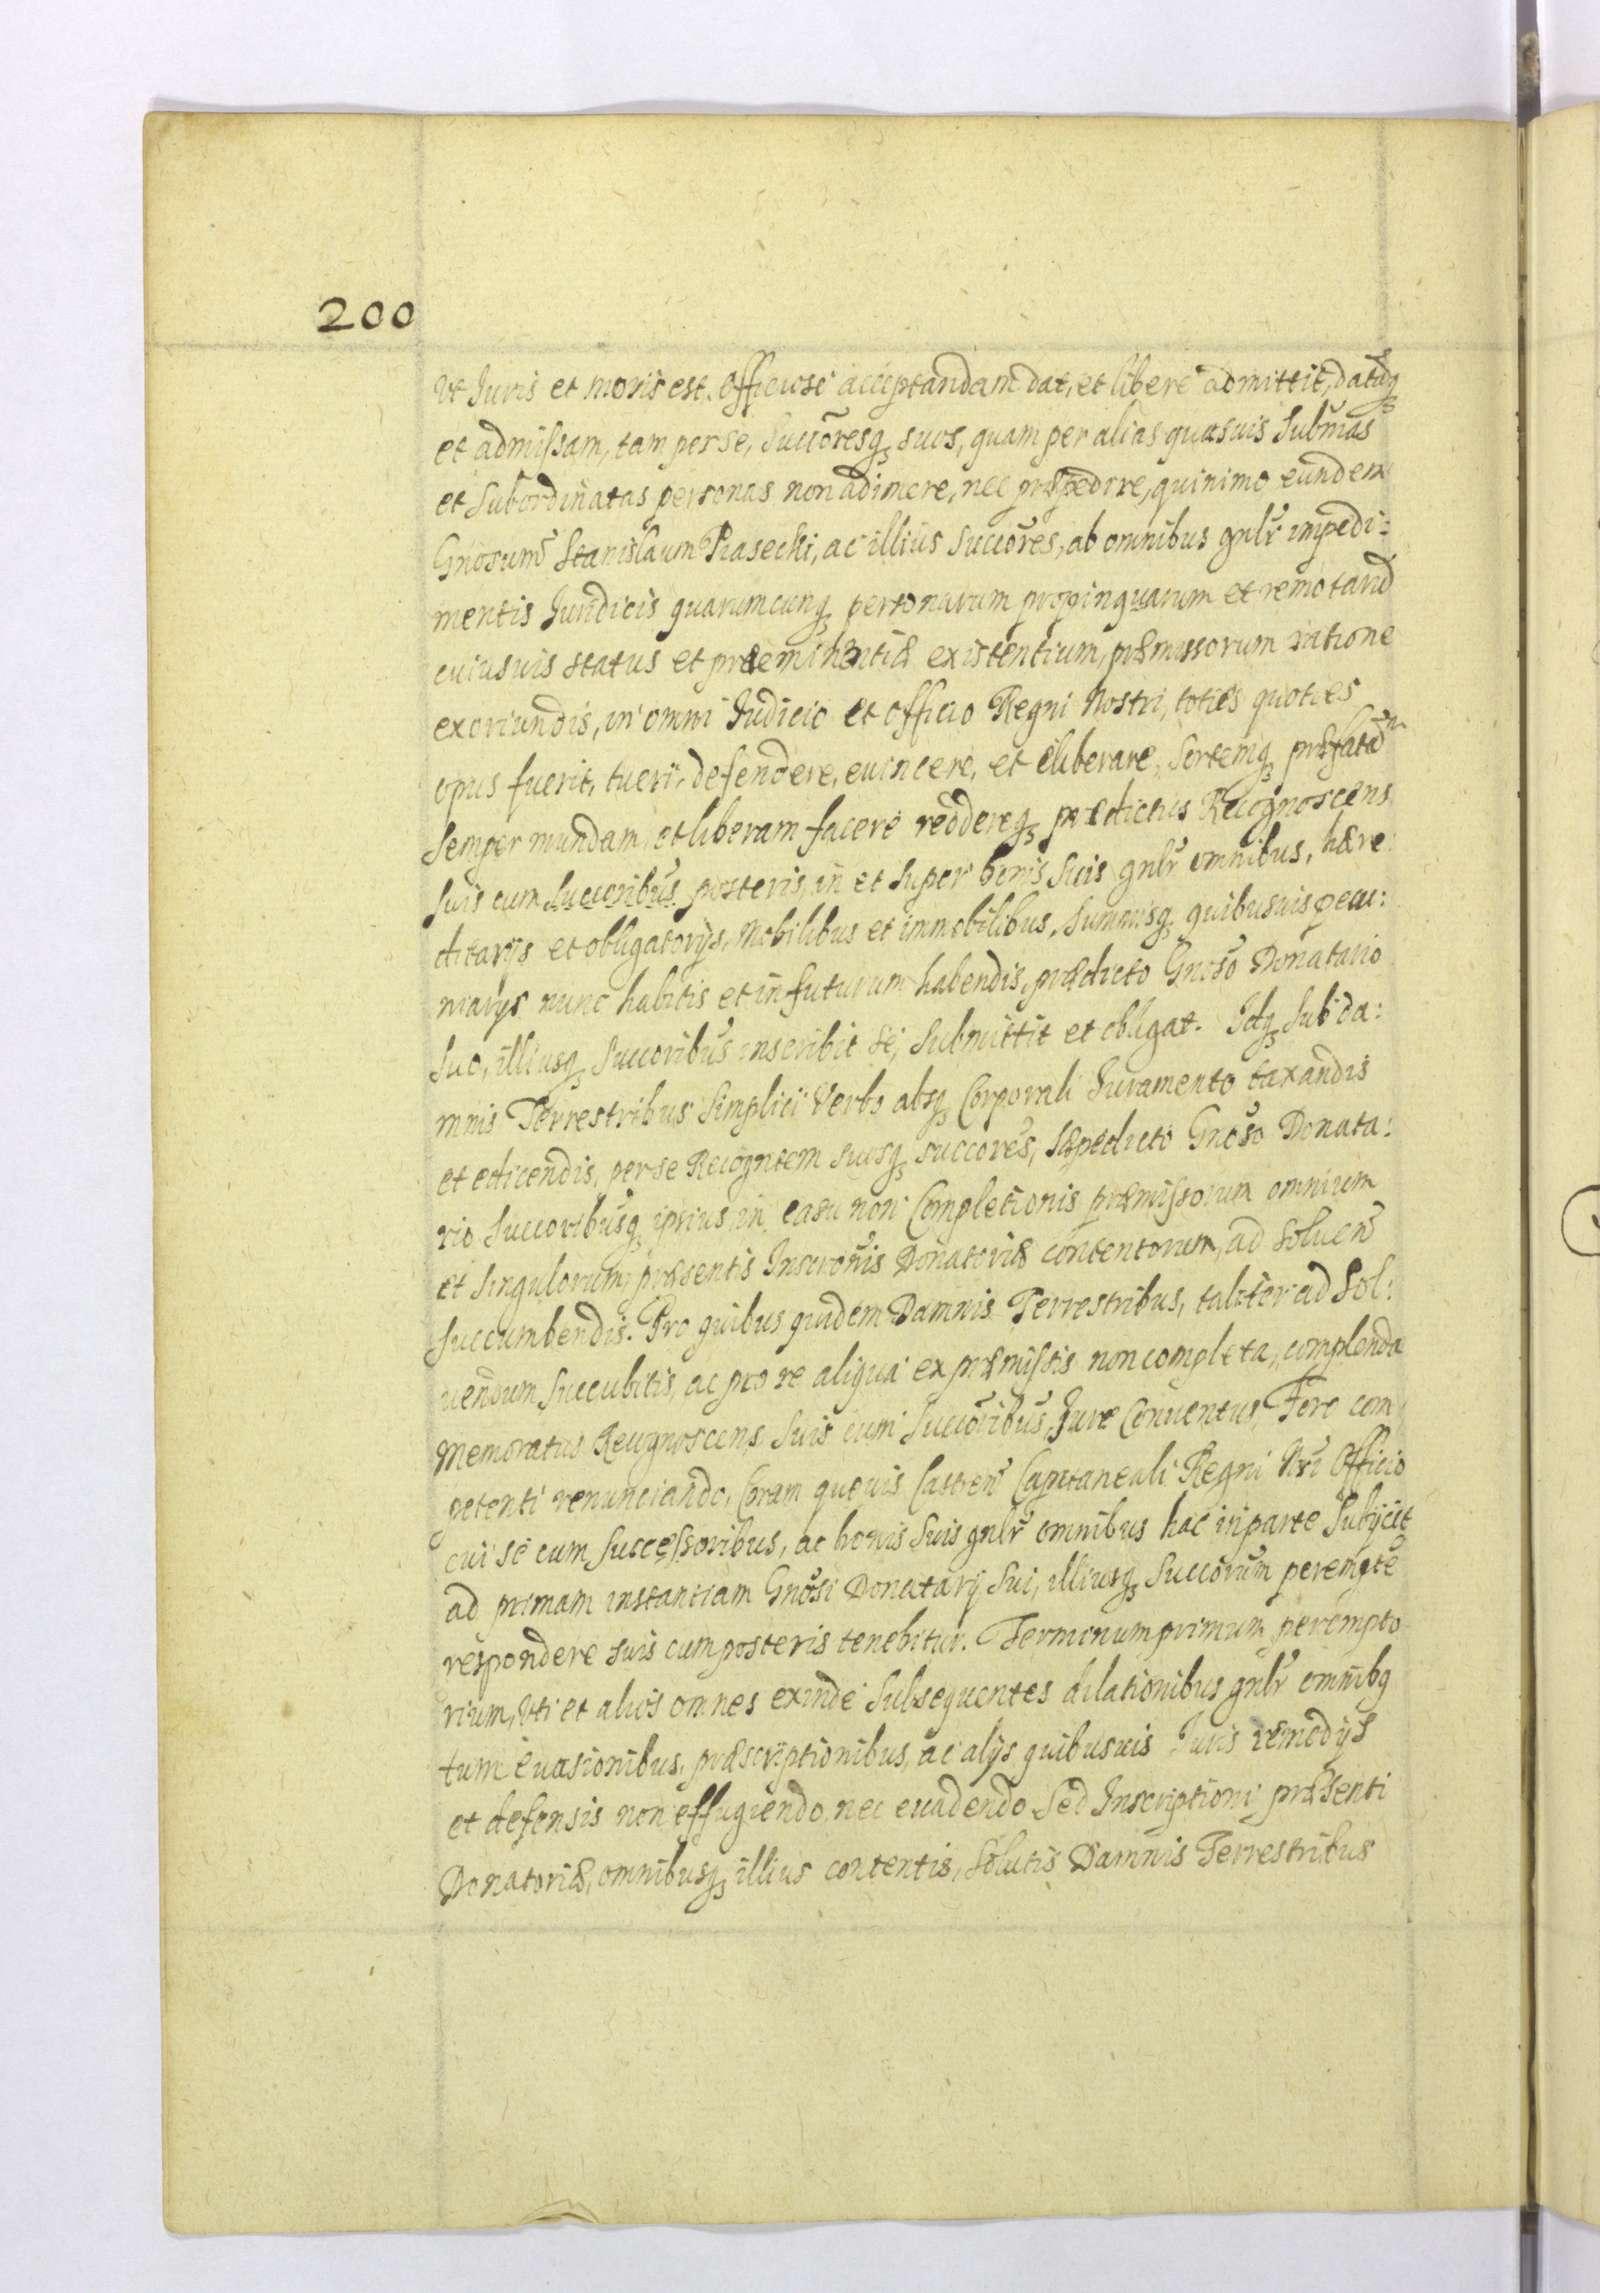 200
Vt Juris et moris est. Officiose acceptandam dat, et libere admittit, datāq
et admissam, tam per se, Succōresq suos, quam per alias quasuis Subm̄as
et Subordinatas personas non adimere, nec præpedire, quinimo eundem
Gnōsum Stanislaum Piasecki, ac illius Succōres, ab omnibus gnlr̄ impedi:
mentis Juridicis quarumcunq personarum propinquarum et remotarū
cuiusuis status et præeminentiæ existentium, præmissorum ratione
exoriundis, in omni Judicio et Officio Regni Nostri, toties quoties
opus fuerit, tueri, defendere, euincere, et eliberare, Sortemq præfatam
Semper mundam et liberam facere reddereq prædictus Recognoscens
Suis cum Succoribus posteris, in et super bonis Suis gnlr̄ omnibus, hære:
ditarijs et obligatorijs, Mobilibus et immobilibus, Summisq quibusuis pecu:
niarijs nunc habitis et in futurum habendis, prædicto Gnōso Donatario
Suo, illiusq Succoribus inscribit se, Submittit et obligat. Idq Sub da:
mnis Terrestribus Simplici Verbo absq Corporali Juramento taxandis
et edicendis, per se Recogntem Suosq succores, Sæpedicto Gnōso Donata:
rio Succoribusq ipsius, in casu non Completionis præmissorum omnium
et singulorum, præsentis Inscrōnis Donatoriæ contentorum, ad Soluen̄
Succumbendis. Pro quibus quidem Damnis Terrestribus, taliter ad Sol:
uendum Succubitis, ac pro re aliqua ex præmissis non completa, complenda
Memoratus Recognoscens Suis cum Succōribus, Jure Conuentus, Foro com
petenti renunciando, Coram quouis Castren̄ Capitaneali Regni Nr̄i Officio
cui se cum Successoribus, ac bonis Suis gnlr̄ omnibus hac in parte Subijcit
ad primam instantiam Gnōsi Donatarij Sui, illiusq Succorum peremptē
respondere suis cum posteris tenebitur. Terminum primum perempto
rium, Vti et alios omnes exinde Subsequentes dilationibus gnlr̄ omnibq
tum euasionibus, præscriptionibus, ac alijs quibusuis Juris remedijs
et defensis non effugiendo nec euadendo Sed Inscriptioni præsenti
Donatoriæ, omnibusq illius contentis, Solutis Damnis Terrestribus